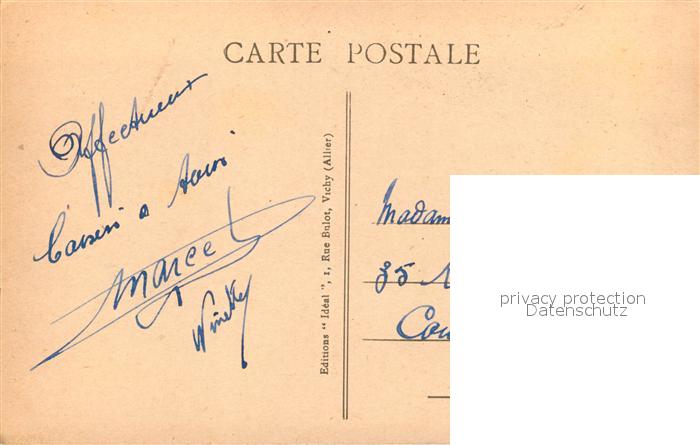 CARTE POSTALE
Affectueux
baisers à tous
Marcel
Editions " Idéal ", 1, Rue Bulot, Vichy (Allier)
Madam
35
Cou
privacy protection
Datenschutz